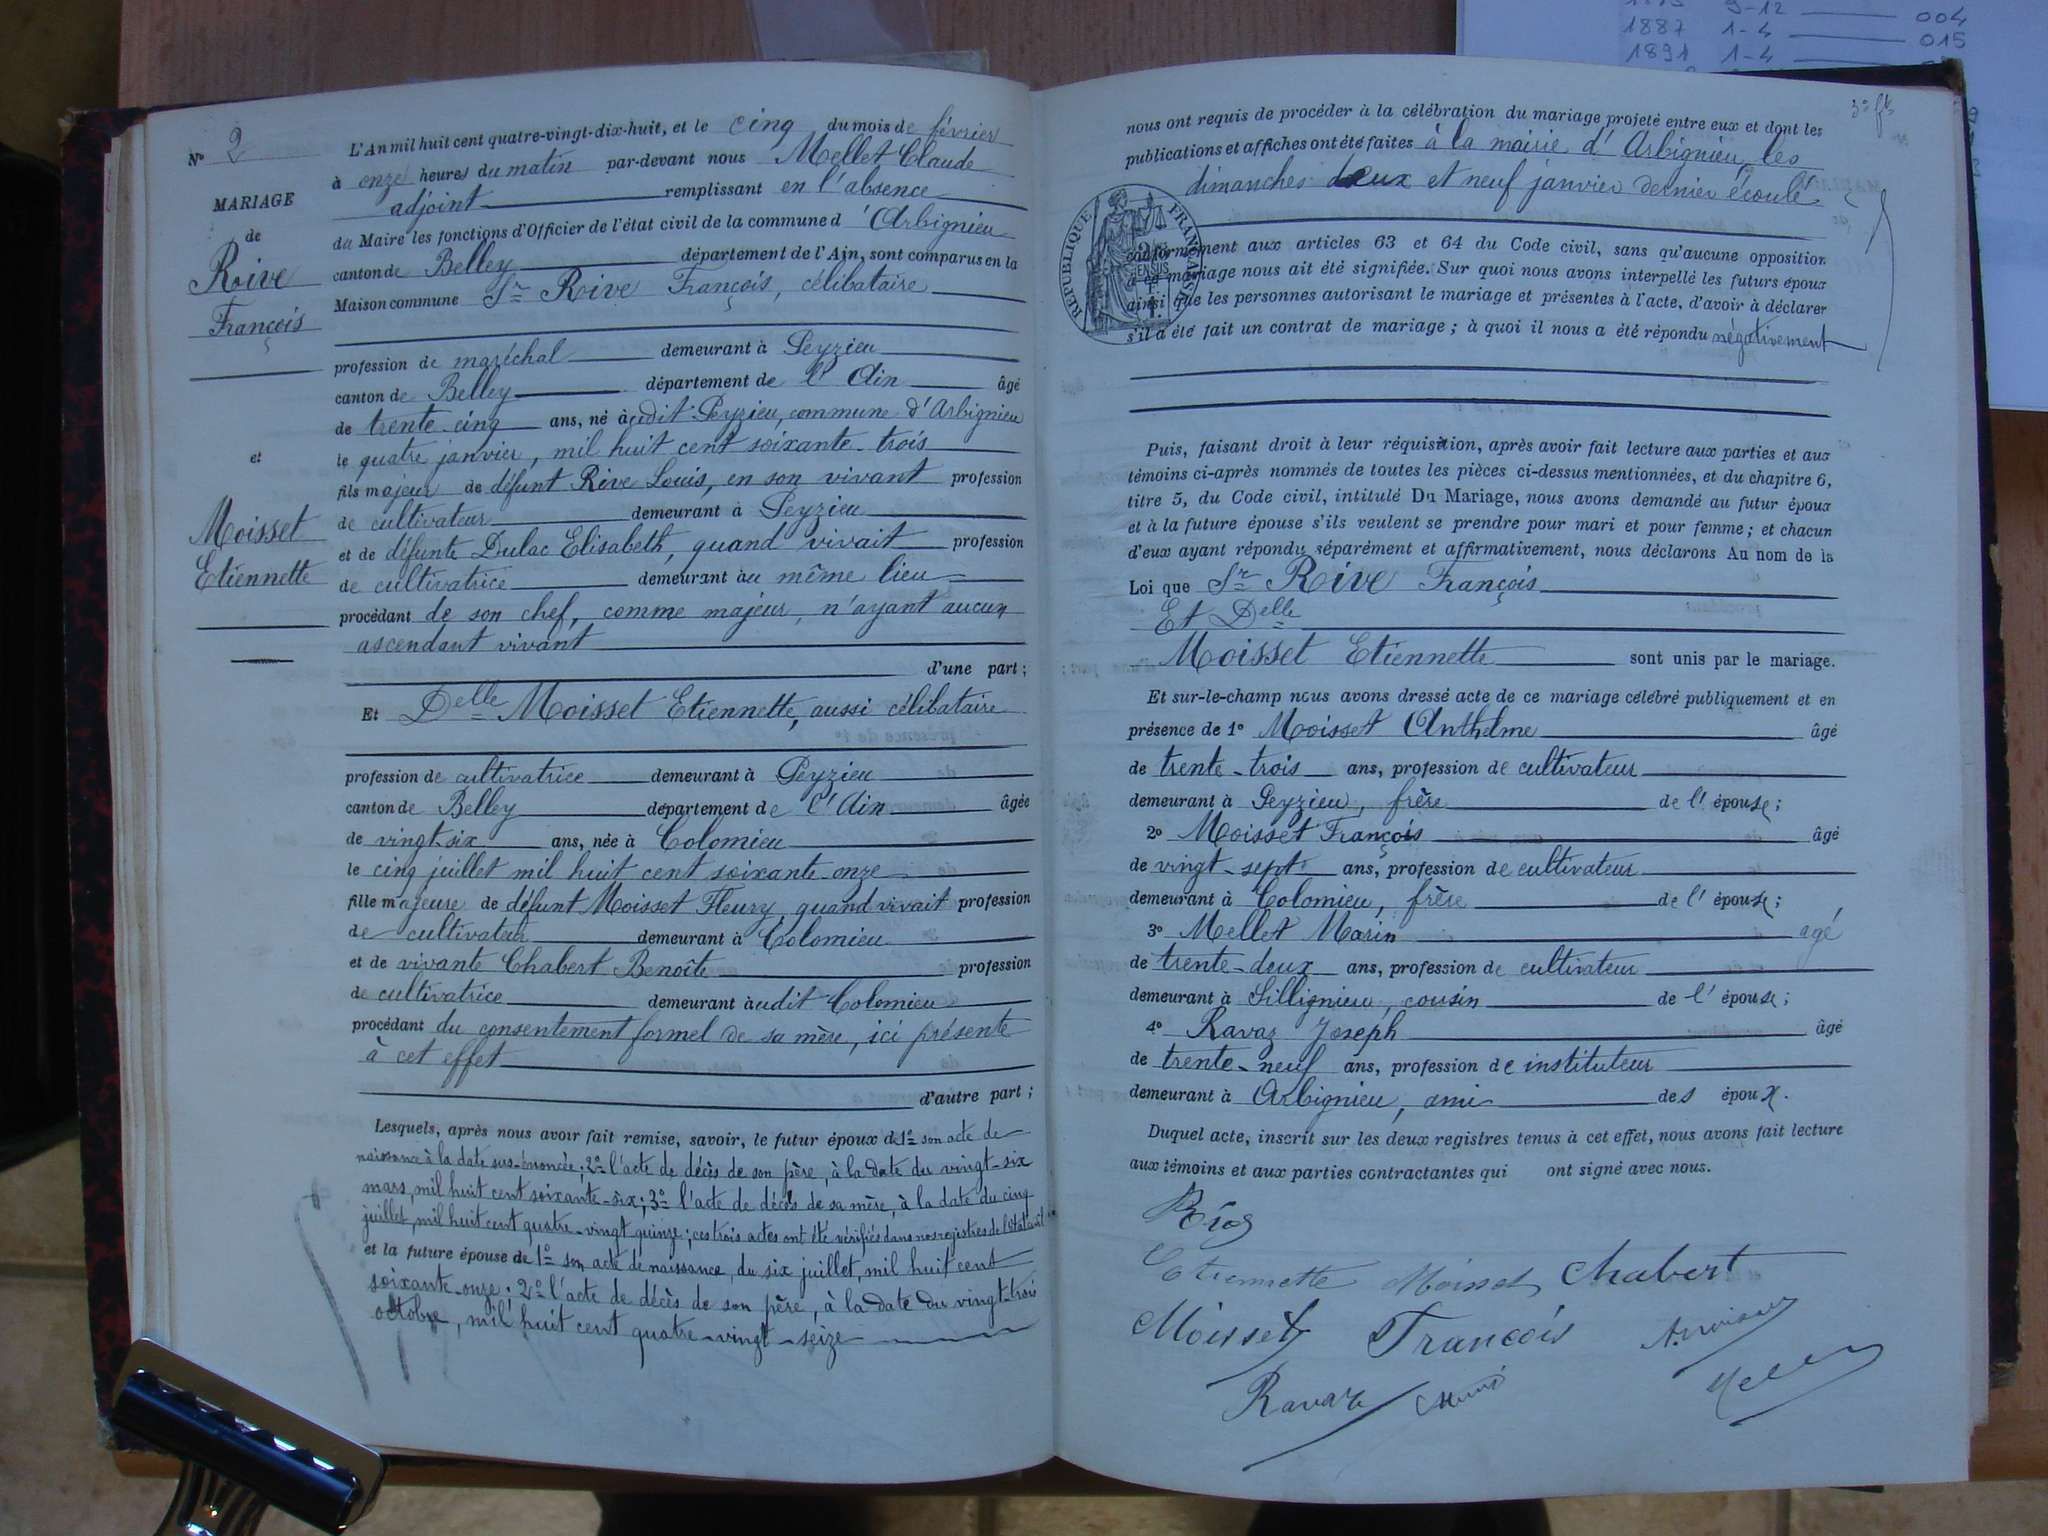 1887 1-4 015
1891 1-4
004
N° 2
MARIAGE
de
Roive
François
et
Moisset
Etiennette
L'An mil huit cent quatre-vingt-dix-huit, et le cinq du mois de février
à onze heures du matin par-devant nous Mellet Claude
adjoint remplissant en l'absence
du Maire les fonctions d'Officier de l'état civil de la commune d'Arbignieu
canton de Belley département de l'Ain, sont comparus en la
Maison commune Sr Roive François, célibataire
profession de maréchal demeurant à Peyzieu
canton de Belley département de l'Ain âgé
de trente-cinq ans, né audit Peyzieu, commune d'Arbignieu
le quatre janvier, mil huit cent soixante-trois
fils majeur de défunt Rive Louis, en son vivant profession
de cultivateur demeurant à Peyzieu
et de défunte Dulac Elisabeth, quand vivait profession
de cultivatrice demeurant au même lieu
procédant de son chef, comme majeur, n'ayant aucun
ascendant vivant
d'une part ;
Et Delle Moisset Etiennette, aussi célibataire
profession de cultivatrice demeurant à Peyzieu
canton de Belley département de l'Ain âgée
de vingt-six ans, née à Colomieu
le cinq juillet mil huit cent soixante-onze
fille majeure de défunt Moisset Fleury, quand vivait profession
de cultivateur demeurant à Colomieu
et de vivante Chabert Benoîte profession
de cultivatrice demeurant audit Colomieu
procédant du consentement formel de sa mère, ici présente
à cet effet
d'autre part ;
Lesquels, après nous avoir fait remise, savoir, le futur époux de 1° son acte de
naissance à la date sus-énoncée ; 2° l'acte de décès de son père, à la date du vingt-six
mars, mil huit cent soixante-six ; 3° l'acte de décès de sa mère, à la date du cinq
juillet, mil huit cent quatre-vingt quinze ; ces trois actes ont été vérifiés dans nos registres de l'état civil
et la future épouse de 1° son acte de naissance, du six juillet, mil huit cent
soixante-onze ; 2° l'acte de décès de son père, à la date du vingt-trois
octobre, mil huit cent quatre-vingt-seize
nous ont requis de procéder à la célébration du mariage projeté entre eux et dont les
publications et affiches ont été faites à la mairie d'Arbignieu, les
dimanches deux et neuf janvier dernier écoulé
RÉPUBLIQUE FRANÇAISE
conformément aux articles 63 et 64 du Code civil, sans qu'aucune opposition
à ce mariage nous ait été signifiée. Sur quoi nous avons interpellé les futurs époux
ainsi que les personnes autorisant le mariage et présentes à l'acte, d'avoir à déclarer
s'il a été fait un contrat de mariage ; à quoi il nous a été répondu négativement
Puis, faisant droit à leur réquisition, après avoir fait lecture aux parties et aux
témoins ci-après nommés de toutes les pièces ci-dessus mentionnées, et du chapitre 6,
titre 5, du Code civil, intitulé Du Mariage, nous avons demandé au futur époux
et à la future épouse s'ils veulent se prendre pour mari et pour femme ; et chacun
d'eux ayant répondu séparément et affirmativement, nous déclarons Au nom de la
Loi que Sr Rive François
Et Delle
Moisset Etiennette sont unis par le mariage.
Et sur-le-champ nous avons dressé acte de ce mariage célébré publiquement et en
présence de 1° Moisset Anthelme âgé
de trente-trois ans, profession de cultivateur
demeurant à Peyzieu, frère de l'épouse ;
2° Moisset François âgé
de vingt-sept ans, profession de cultivateur
demeurant à Colomieu, frère de l'épouse ;
3° Mellet Marin agé
de trente-deux ans, profession de cultivateur
demeurant à Sillignieu, cousin de l'épouse ;
4° Ravaz Joseph âgé
de trente-neuf ans, profession de instituteur
demeurant à Arbignieu, ami des époux.
Duquel acte, inscrit sur les deux registres tenus à cet effet, nous avons fait lecture
aux témoins et aux parties contractantes qui ont signé avec nous.
Etiennette Moisset Chabert
Moisset François
Ravaz